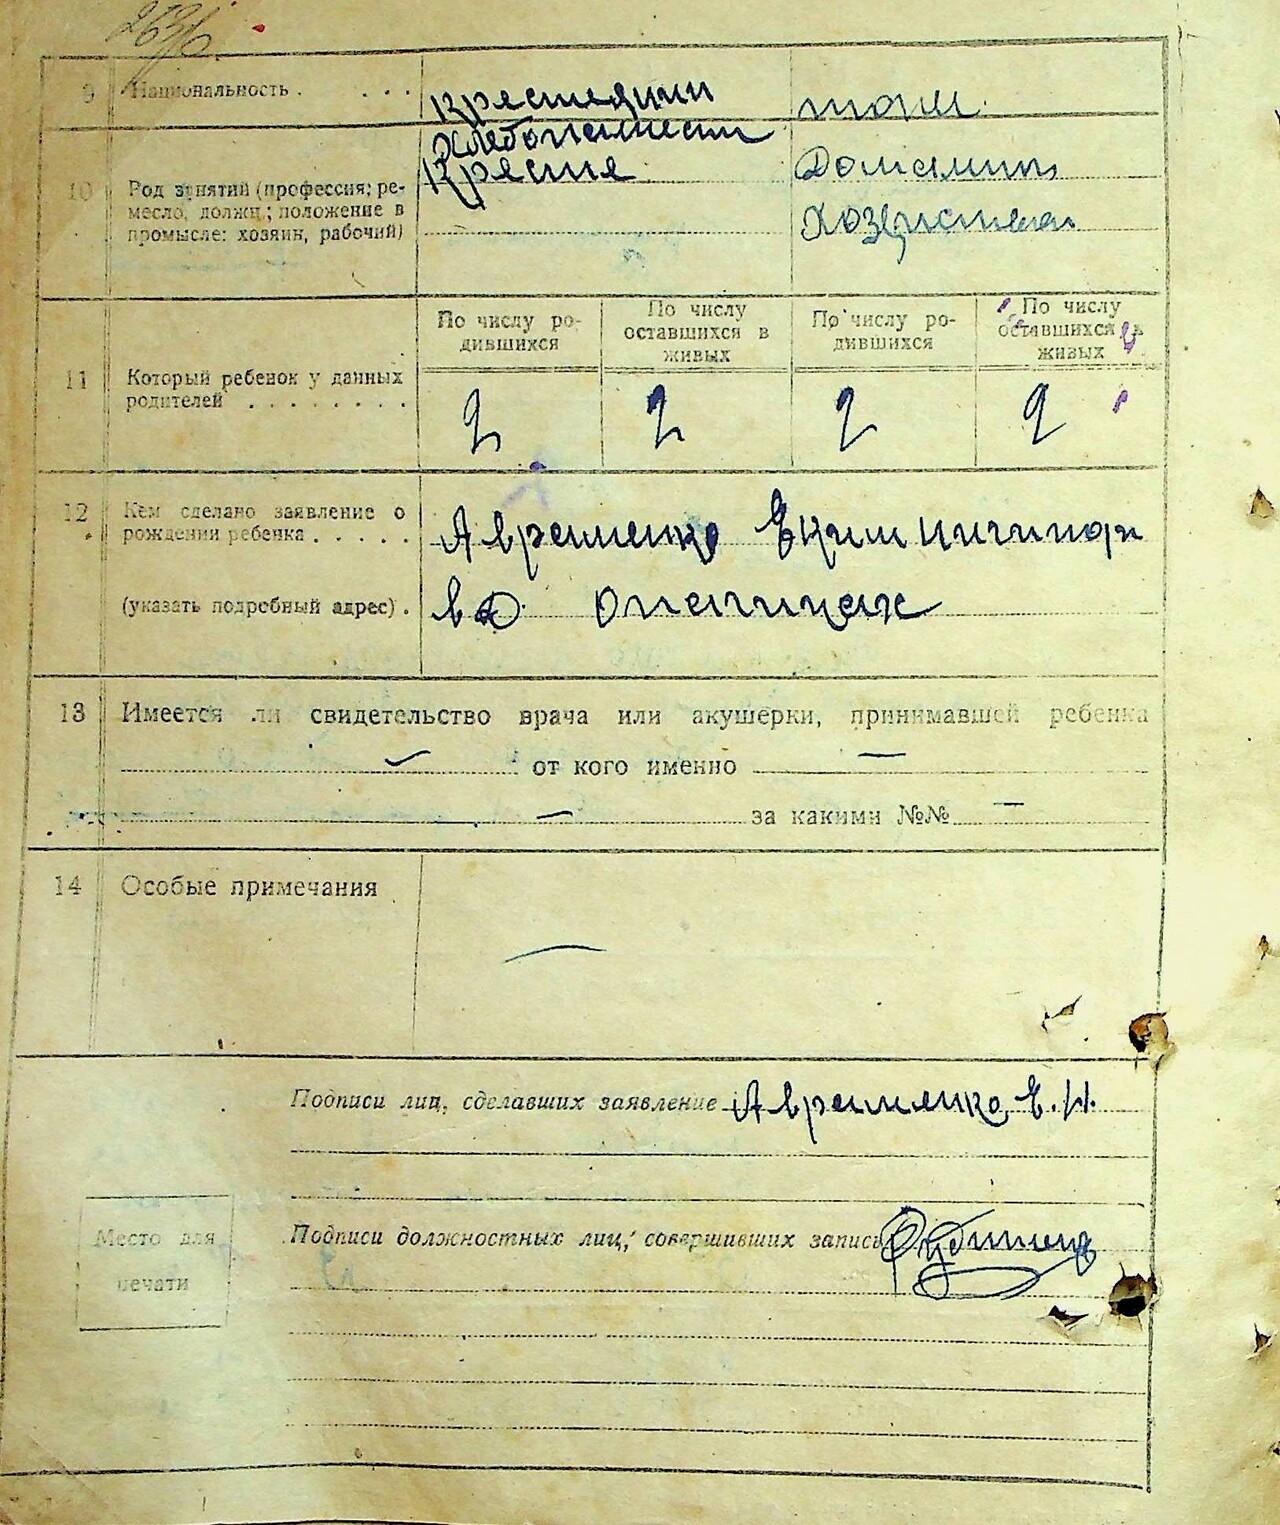 263б
9 Национальность . . . . крестьянин тоже
хлебопашест
10 Род занятий (профессия; ре- крестья Домашни
месло, должн.; положение в
промысле: хозяин, рабочий) Хозяйства
По числу ро- По числу По числу ро- По числу
дившихся оставшихся в дившихся оставшихся в
живых живых
11 Который ребенок у данных
родителей . . . . . . . . 2 2 2 2
12 Кем сделано заявление о
рождении ребенка . . . . . Авраменко Еким
(указать подробный адрес) .
13 Имеется ли свидетельство врача или акушерки, принимавшей ребенка
— от кого именно —
— за какими №№ —
14 Особые примечания
—
Подписи лиц, сделавших заявление Авраменко Е. Н.
Подписи должностных лиц, совершивших запись
Место для
печати